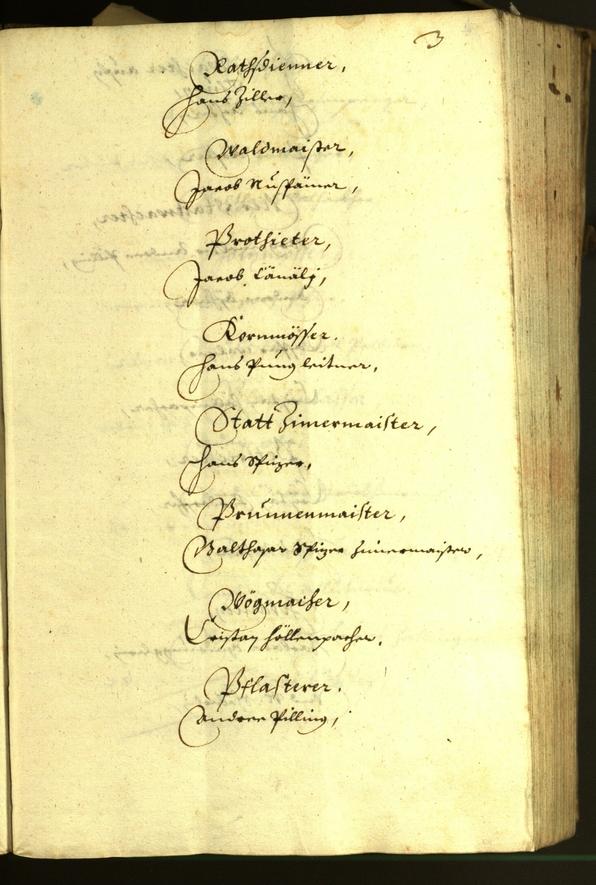 3
Rathsdienner,
Hans Ziller,
Waldmaister,
Jacob Nuspämer,
Brothieter,
Jacob
Kornmösser.
Hans Pungleitner,
Statt Zimermaister,
Hans Spizer,
Brunnenmaister,
Balthasar Spizer Zimermaister,
Wögmaister,
Cristan Höllenpacher.
Pflasterer.
Andree Pilling,